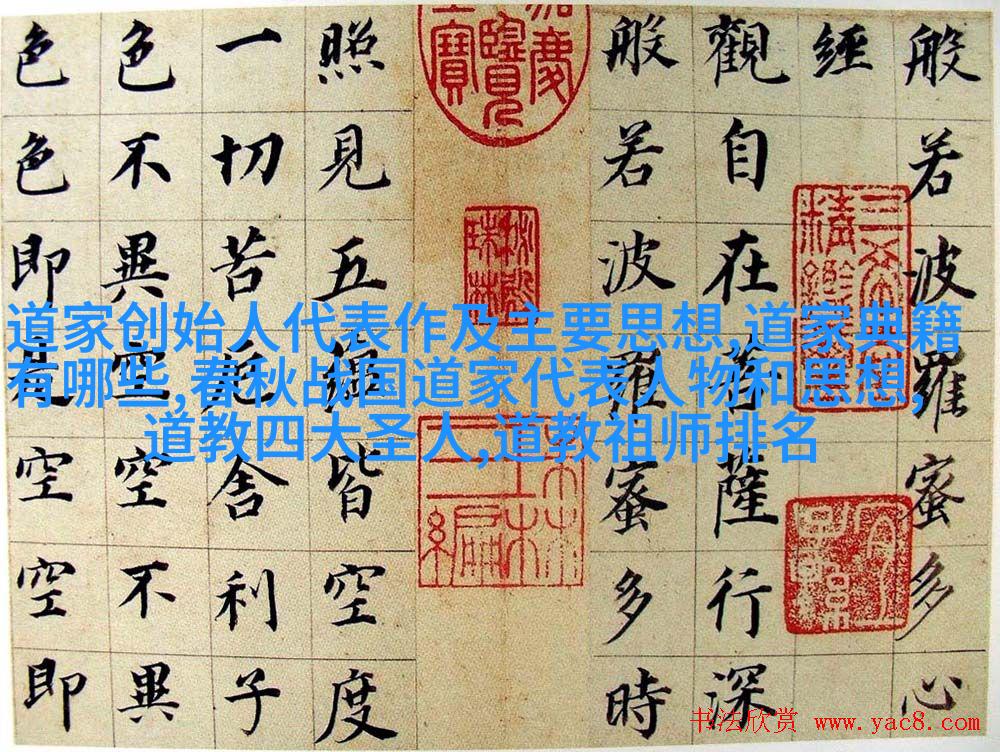 般若波羅蜜多心
經
觀自在菩薩行深
般若波羅蜜多時
照見五蘊皆空度
一切苦厄舍利子
色不異空空不異
色色即是空空即
道家创始人代表作及主要思想,道家典籍
有哪些,春秋战国道家代表人物和思想,
道教四大圣人,道教祖师排名
秘殿珠林
书法欣赏 www.yac8.com